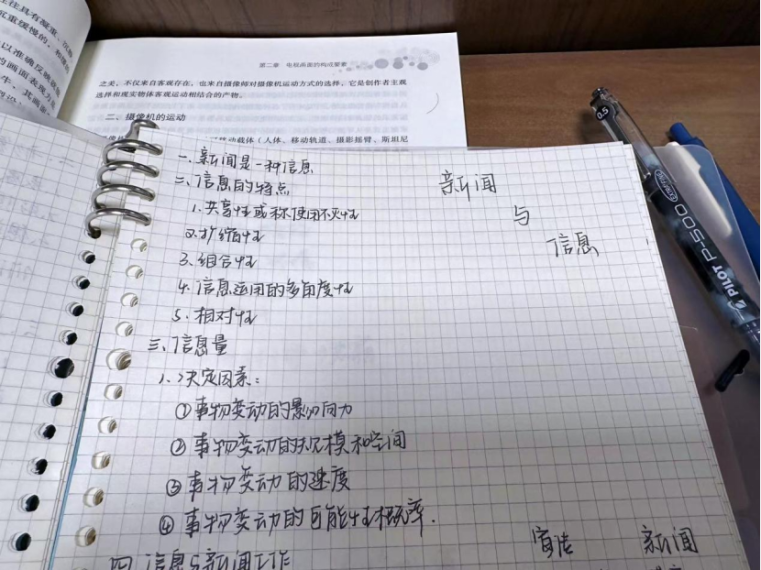 第二章 电视画面的构成要素
之关，不仅来自客观存在，也来自摄像师对摄像机运动方式的选择，它是创作者主观
选择和现实物体客观运动相结合的产物。
二、摄像机的运动
移动载体（人体、移动轨道、摄影摇臂、斯坦尼
新闻
与
信息
一、新闻是一种信息
二、信息的特点
1.共享性或称使用不灭性
2.扩缩性
3.组合性
4.信息运用的多角度性
5.相对性
三、信息量
1、决定因素：
①事物变动的影响力
②事物变动的规模和空间
③事物变动的速度
④事物变动的可能性概率.
四、信息与新闻工作
宣传 新闻
0.5
PILOT P-500